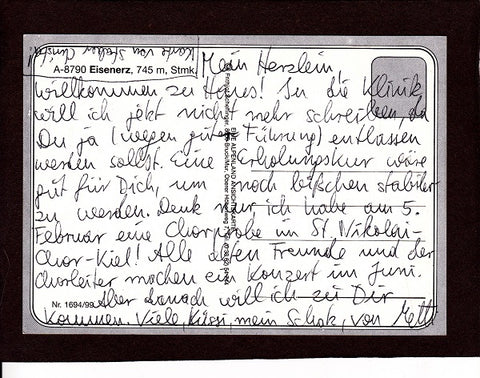 Karte von Stefan
A-8790 Eisenerz, 745 m, Stmk.
Mein Herzlein
willkommen zu Haus! In die Klinik
will ich jetzt nicht mehr schreiben, da
Du ja (wegen guter Führung) entlassen
werden sollst. Eine Erholungskur wäre
gut für Dich, um noch bißchen stabiler
zu werden. Denk nur ich habe am 5.
Februar eine Chorprobe im St. Nikolai-
Chor-Kiel! Alle alten Freunde und der
Chorleiter machen ein Konzert im Juni.
Nr. 1694/99
Aber danach will ich zu Dir
kommen. Viele Küssi, mein Schatz, von